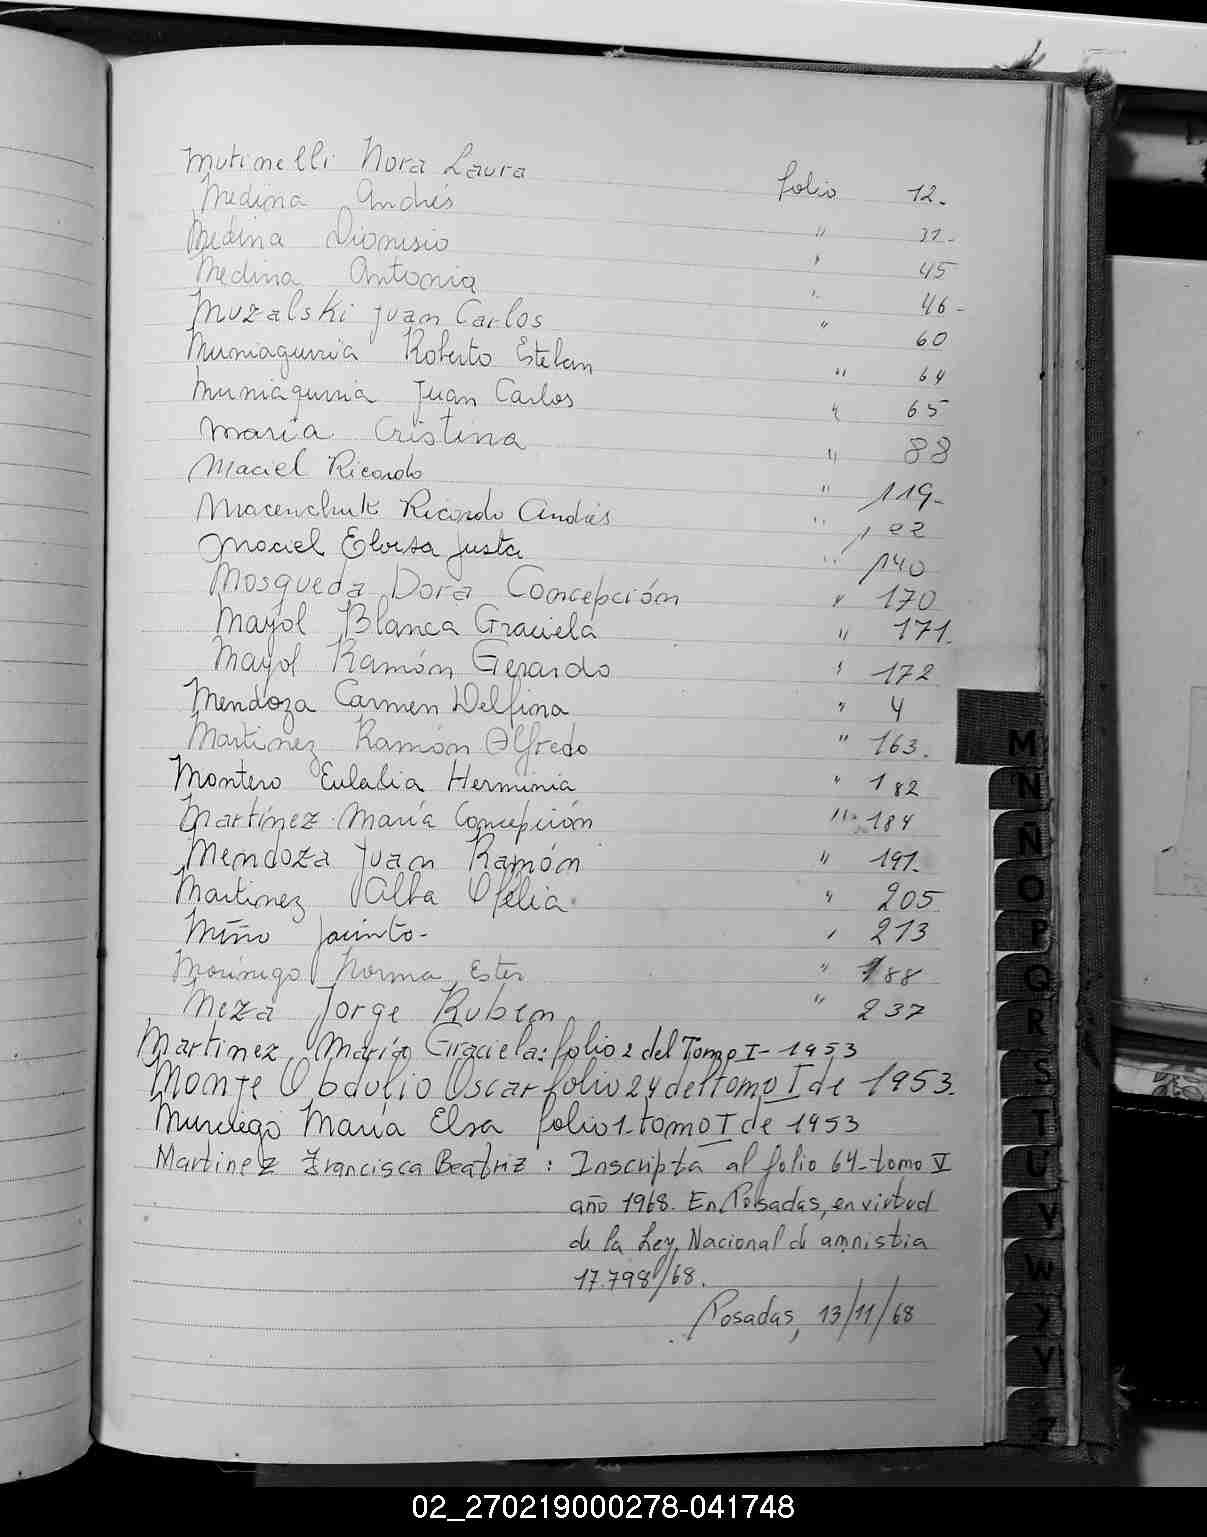 Mutinelli Nora Laura folio 12.
Medina Andrés " 31.
Medina Dionisio " 45
Medina Antonia " 46-
Muzalski Juan Carlos " 60
Muniagurria Roberto Esteban " 64
Muniagurria Juan Carlos " 65
Maria Cristina " 88
Maciel Ricardo " 119-
Macenchuk Ricardo Andrés " 122
Maciel Eloisa Justa " 140
Mosqueda Dora Concepción " 170
Mayol Blanca Graciela " 171.
Mayol Ramón Gerardo " 172
Mendoza Carmen Delfina " 4
Martinez Ramón Alfredo " 163.
Montero Eulalia Herminia " 182
Martínez María Concepción " 184
Mendoza Juan Ramón " 191.
Martinez Alba Ofelia " 205
Miño Jacinto- " 213
Morinigo Norma Ester " 188
Meza Jorge Ruben " 237
Martinez, Maria Graciela: folio 2 del Tomo I- 1953
Monje Obdulio Oscar folio 24 del tomo I de 1953.
Maria Elsa folio 1-tomo I de 1953
Martinez Francisca Beatriz : Inscripta al folio 64-tomo V
año 1968. En Posadas, en virtud
de la Ley, Nacional de amnistia
17.798/68.
Posadas, 13/11/68
M
N
Ñ
O
P
Q
R
S
T
U
V
W
X
Y
Z
02_270219000278-041748